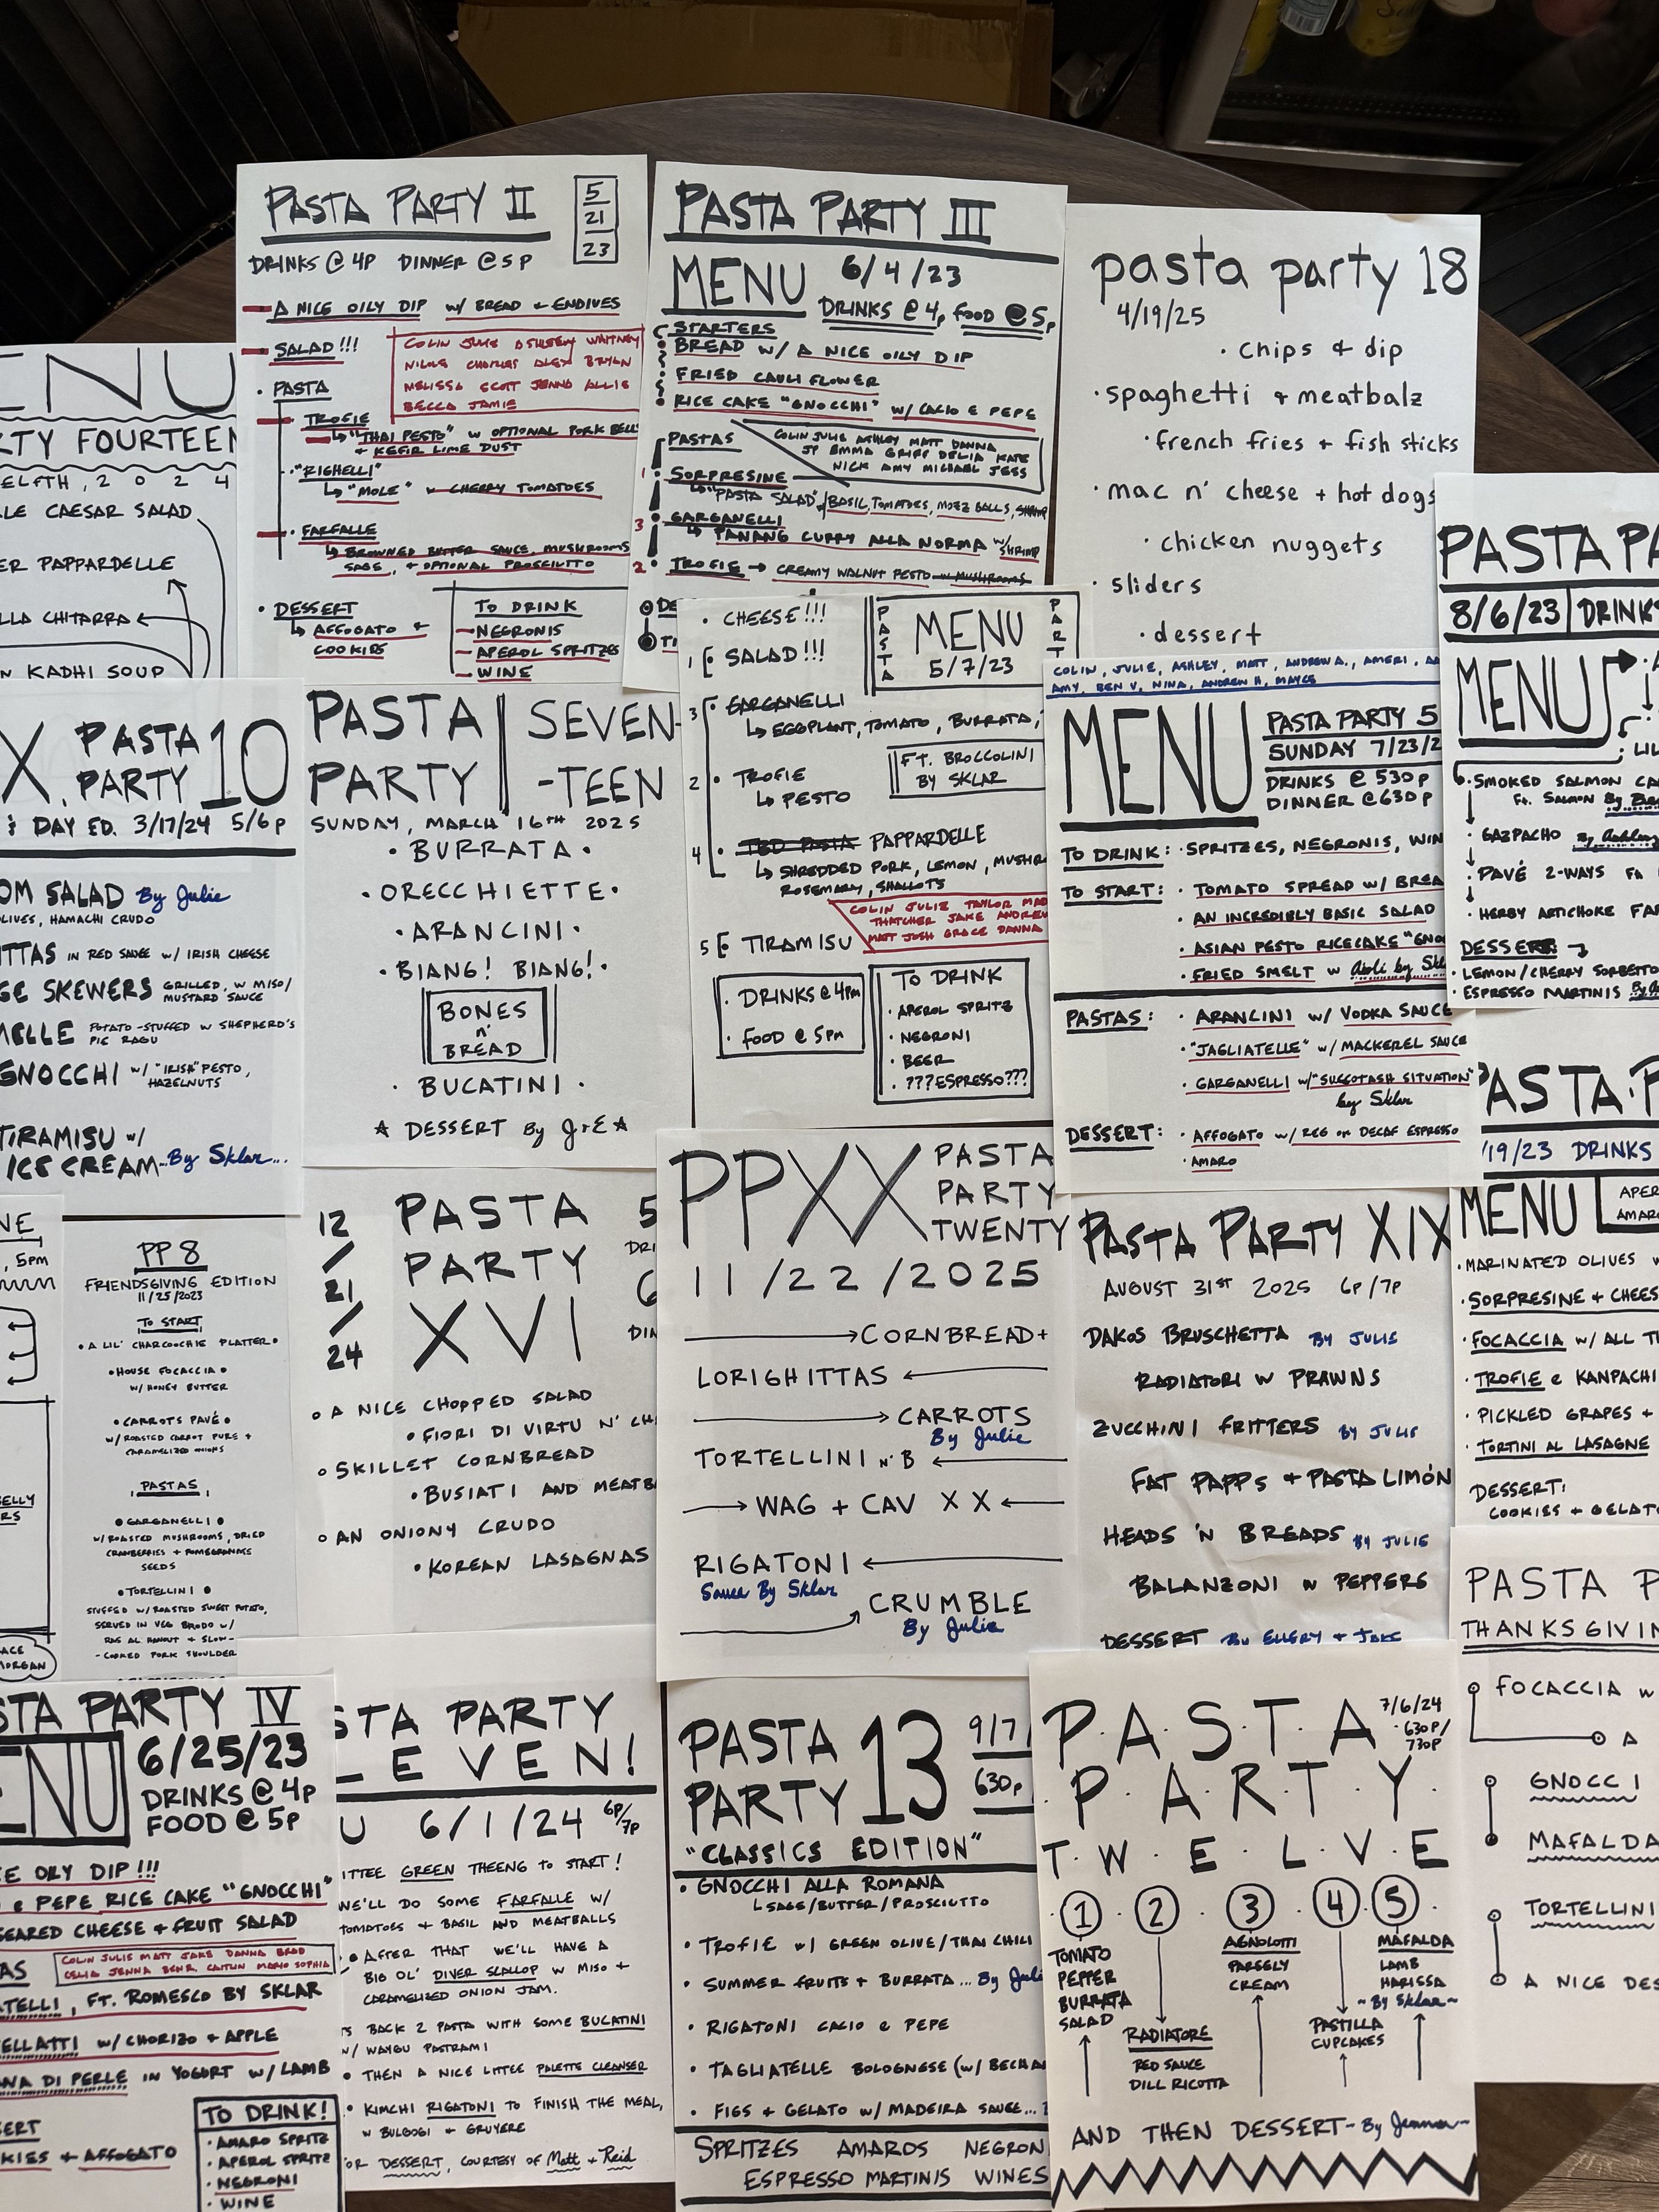 PASTA PARTY II
5
21
23
DRINKS @ 4P DINNER @ 5P
A NICE OILY DIP W/ BREAD + ENDIVES
SALAD!!!
COLIN JULIE ASHLEY WHITNEY
NICOLE CHARLES ALEX BRYAN
MELISSA SCOTT JENNA ALLIE
BECCA JAMIE
PASTA
TROFIE
"THAI PESTO" W OPTIONAL PORK BELL
+ KEFIR LIME DUST
"RIGHELLI"
"MOLE" CHERRY TOMATOES
FARFALLE
BROWNED BUTTER SAUCE, MUSHROOMS
SAGE, + OPTIONAL PROSCIUTTO
DESSERT
AFFOGATO +
COOKIES
TO DRINK
NEGRONIS
APEROL SPRITZES
WINE
PASTA PARTY III
MENU
6/4/23
DRINKS @ 4P FOOD @ 5P
STARTERS
BREAD W/ A NICE OILY DIP
FRIED CAULIFLOWER
RICE CAKE "GNOCCHI" W/ CACIO E PEPE
PASTAS
COLIN JULIE ASHLEY MATT DANNA
JP EMMA GRIFF DELIA KATE
NICK AMY MICHAEL JESS
1 SORPRESINE
"PASTA SALAD" W/ BASIL, TOMATOES, MOZZ BALLS, SHRIMP
3 GARGANELLI
PANANG CURRY ALLA NORMA W/ SHRIMP
2 TROFIE → CREAMY WALNUT PESTO W/ MUSHROOMS
DE
TI
pasta party 18
4/19/25
chips & dip
spaghetti & meatbalz
french fries + fish sticks
mac n' cheese + hot dogs
chicken nuggets
sliders
dessert
ENU
RTY FOURTEEN
ELFTH, 2024
LE CAESAR SALAD
ER PAPPARDELLE
LLA CHITARRA
N KADHI SOUP
CHEESE!!!
1 SALAD!!!
PASTA
MENU
5/7/23
PART
3 GARGANELLI
EGGPLANT, TOMATO, BURRATA,
FT. BROCCOLINI
BY SKLAR
2 TROFIE
PESTO
4 TBD PASTA PAPPARDELLE
SHREDDED PORK, LEMON, MUSHR
ROSEMARY, SHALLOTS
COLIN JULIE TAYLOR MAD
THATCHER JAKE ANDREW
MATT JOSH GRACE DANNA
5 TIRAMISU
DRINKS @ 4PM
FOOD @ 5PM
TO DRINK
APEROL SPRITZ
NEGRONI
BEER
???ESPRESSO???
COLIN, JULIE, ASHLEY, MATT, ANDREW A., AMERI, AA
AMY, BEN V, NINA, ANDREW H, MAYCE
MENU
PASTA PARTY 5
SUNDAY 7/23/2
DRINKS @ 530P
DINNER @ 630P
TO DRINK: SPRITZES, NEGRONIS, WIN
TO START: TOMATO SPREAD W/ BREA
AN INCREDIBLY BASIC SALAD
ASIAN PESTO RICECAKE "GNO
FRIED SMELT W Aioli by Skl
PASTAS: ARANCINI W/ VODKA SAUCE
"JAGLIATELLE" W/ MACKEREL SAUCE
GARGANELLI W/ "SUCCOTASH SITUATION"
by Sklar
DESSERT: AFFOGATO W/ REG OR DECAF ESPRESSO
AMARO
PASTA PA
8/6/23 DRINKS
MENU
LIL
SMOKED SALMON CA
Ft. SALMON By
GAZPACHO By Ashley
PAVÉ 2-WAYS
HERBY ARTICHOKE FAR
DESSERT
LEMON/CHERRY SORBETTO
ESPRESSO MARTINIS By
X. PASTA PARTY 10
& DAY ED. 3/17/24 5/6P
OM SALAD By Julie
LIVES, HAMACHI CRUDO
ITTAS IN RED SAUCE W/ IRISH CHEESE
GE SKEWERS GRILLED, W MISO/
MUSTARD SAUCE
MELLE POTATO-STUFFED W SHEPHERD'S
PIE RAGU
GNOCCHI W/ "IRISH" PESTO,
HAZELNUTS
TIRAMISU W/
ICE CREAM By Sklar...
PASTA PARTY SEVEN-TEEN
SUNDAY, MARCH 16TH 2025
BURRATA
ORECCHIETTE
ARANCINI
BIANG! BIANG!
BONES
N'
BREAD
BUCATINI
DESSERT By J+E
NE
, 5PM
ELLY
RS
ACE
MORGAN
PP 8
FRIENDSGIVING EDITION
11/25/2023
TO START
A LIL' CHARCOOCHIE PLATTER
HOUSE FOCACCIA
W/ HONEY BUTTER
CARROTS PAVÉ
W/ ROASTED CARROT PURE +
CARAMELIZED ONIONS
PASTAS
GARGANELLI
W/ ROASTED MUSHROOMS, DRIED
CRANBERRIES + POMEGRANATE
SEEDS
TORTELLINI
STUFFED W/ ROASTED SWEET POTATO,
SERVED IN VEG BRODO W/
RAS AL HANOUT + SLOW-
-COOKED PORK SHOULDER
12/21/24
PASTA
PARTY
XVI
5
DRI
6
DIN
A NICE CHOPPED SALAD
FIORI DI VIRTU N' CH
SKILLET CORNBREAD
BUSIATI AND MEATB
AN ONIONY CRUDO
KOREAN LASAGNAS
PPXX PASTA
PARTY
TWENTY
11/22/2025
CORNBREAD+
LORIGHITTAS
CARROTS
By Julie
TORTELLINI N' B
WAG + CAV XX
RIGATONI
Sauce By Sklar
CRUMBLE
By Julie
PASTA PARTY XIX
AUGUST 31ST 2025 6P/7P
DAKOS BRUSCHETTA BY JULIE
RADIATORI W PRAWNS
ZUCCHINI FRITTERS BY JULIE
FAT PAPPS + PASTA LIMÓN
HEADS 'N BREADS BY JULIE
BALANZONI N PEPPERS
DESSERT BY ELLERY + JAKE
PASTA P
/19/23 DRINKS
MENU
APER
AMARO
MARINATED OLIVES W
SORPRESINE + CHEES
FOCACCIA W/ ALL TH
TROFIE E KANPACHI
PICKLED GRAPES +
TORTINI AL LASAGNE
DESSERT:
COOKIES + GELATO
STA PARTY IV
ENU
6/25/23
DRINKS @ 4P
FOOD @ 5P
CE OILY DIP!!!
E PEPE RICE CAKE "GNOCCHI"
SEARED CHEESE + FRUIT SALAD
COLIN JULIE MATT JAKE DANNA BRAD
CELIA JENNA BEN R. CAITLIN MARIO SOPHIA
AS
ATELLI, FT. ROMESCO BY SKLAR
ELLATTI W/ CHORIZO + APPLE
NA DI PERLE IN YOGURT W/ LAMB
SERT
KIES + AFFOGATO
TO DRINK!
AMARO SPRITZ
APEROL SPRITZ
NEGRONI
WINE
STA PARTY
EVEN!
U 6/1/24 6P/7P
ITTEE GREEN THEENG TO START!
WE'LL DO SOME FARFALLE W/
TOMATOES + BASIL AND MEATBALLS
AFTER THAT WE'LL HAVE A
BIG OL' DIVER SCALLOP W MISO +
CARAMELIZED ONION JAM.
BACK 2 PASTA WITH SOME BUCATINI
W/ WAYGU PASTRAMI
THEN A NICE LITTLE PALETTE CLEANSER
KIMCHI RIGATONI TO FINISH THE MEAL,
W BULGOGI + GRUYERE
OR DESSERT, COURTESY OF Matt + Reid
PASTA PARTY 13
9/7/
630P
"CLASSICS EDITION"
GNOCCHI ALLA ROMANA
SAGE/BUTTER/PROSCIUTTO
TROFIE W/ GREEN OLIVE/THAI CHILI
SUMMER FRUITS + BURRATA... By Juli
RIGATONI CACIO E PEPE
TAGLIATELLE BOLOGNESE (W/ BECHAM
FIGS + GELATO W/ MADEIRA SAUCE...
SPRITZES AMAROS NEGRON
ESPRESSO MARTINIS WINES
P.A.S.T.A
7/6/24
630P/
730P
P.A.R.T.Y.
T.W.E.L.V.E
1 2 3 4 5
TOMATO
PEPPER
BURRATA
SALAD
RADIATORE
RED SAUCE
DILL RICOTTA
AGNOLOTTI
PARSELY
CREAM
PASTILLA
CUPCAKES
MAFALDA
LAMB
HARISSA
~BY Sklar~
AND THEN DESSERT - By Jenna
PASTA P
THANKSGIVIN
FOCACCIA W
A
GNOCCI
MAFALDA
TORTELLINI
A NICE DES